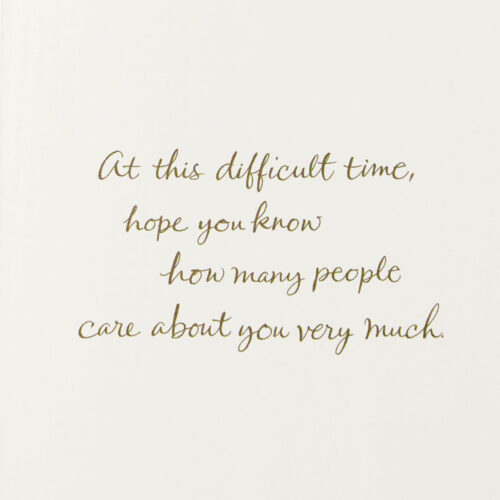 At this difficult time,
hope you know
how many people
care about you very much.